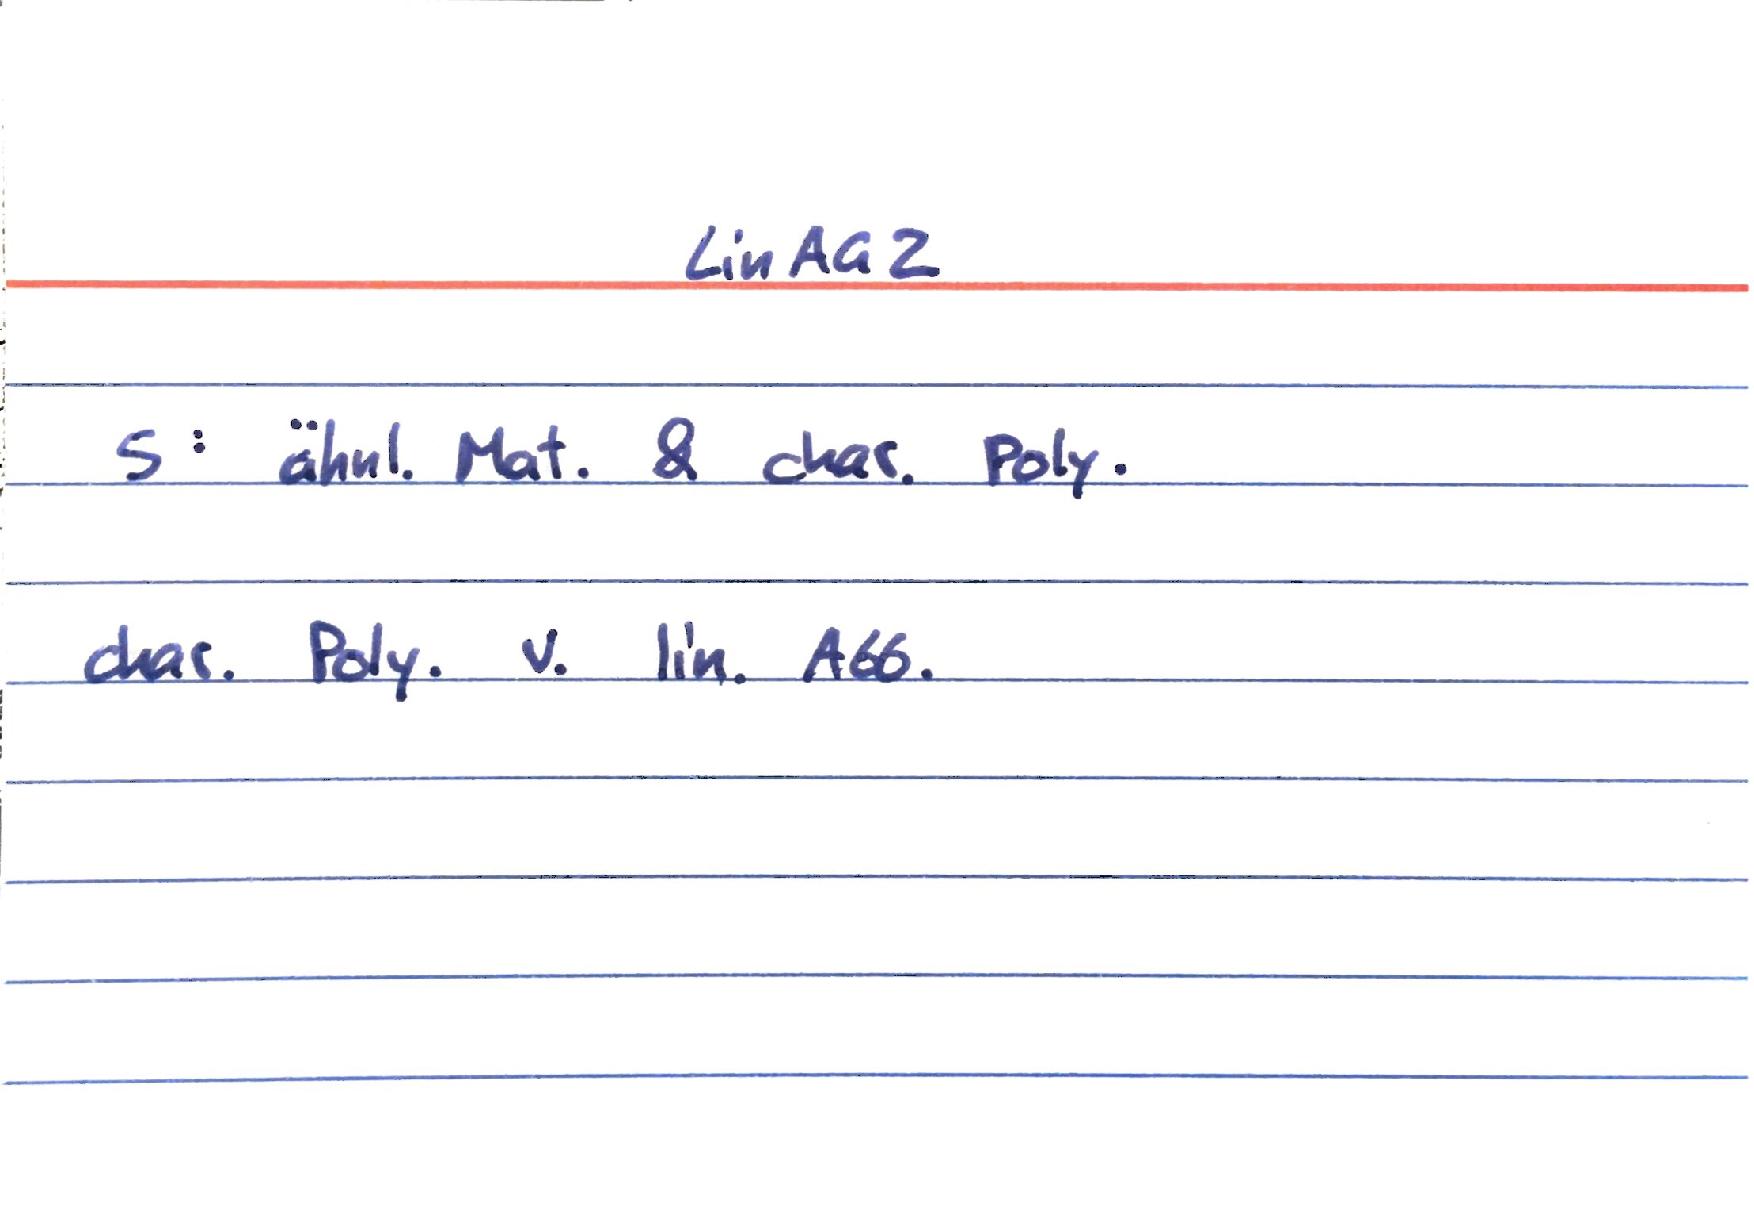 LinAG 2
S: ähnl. Mat. & char. Poly.
char. Poly. v. lin. Abb.